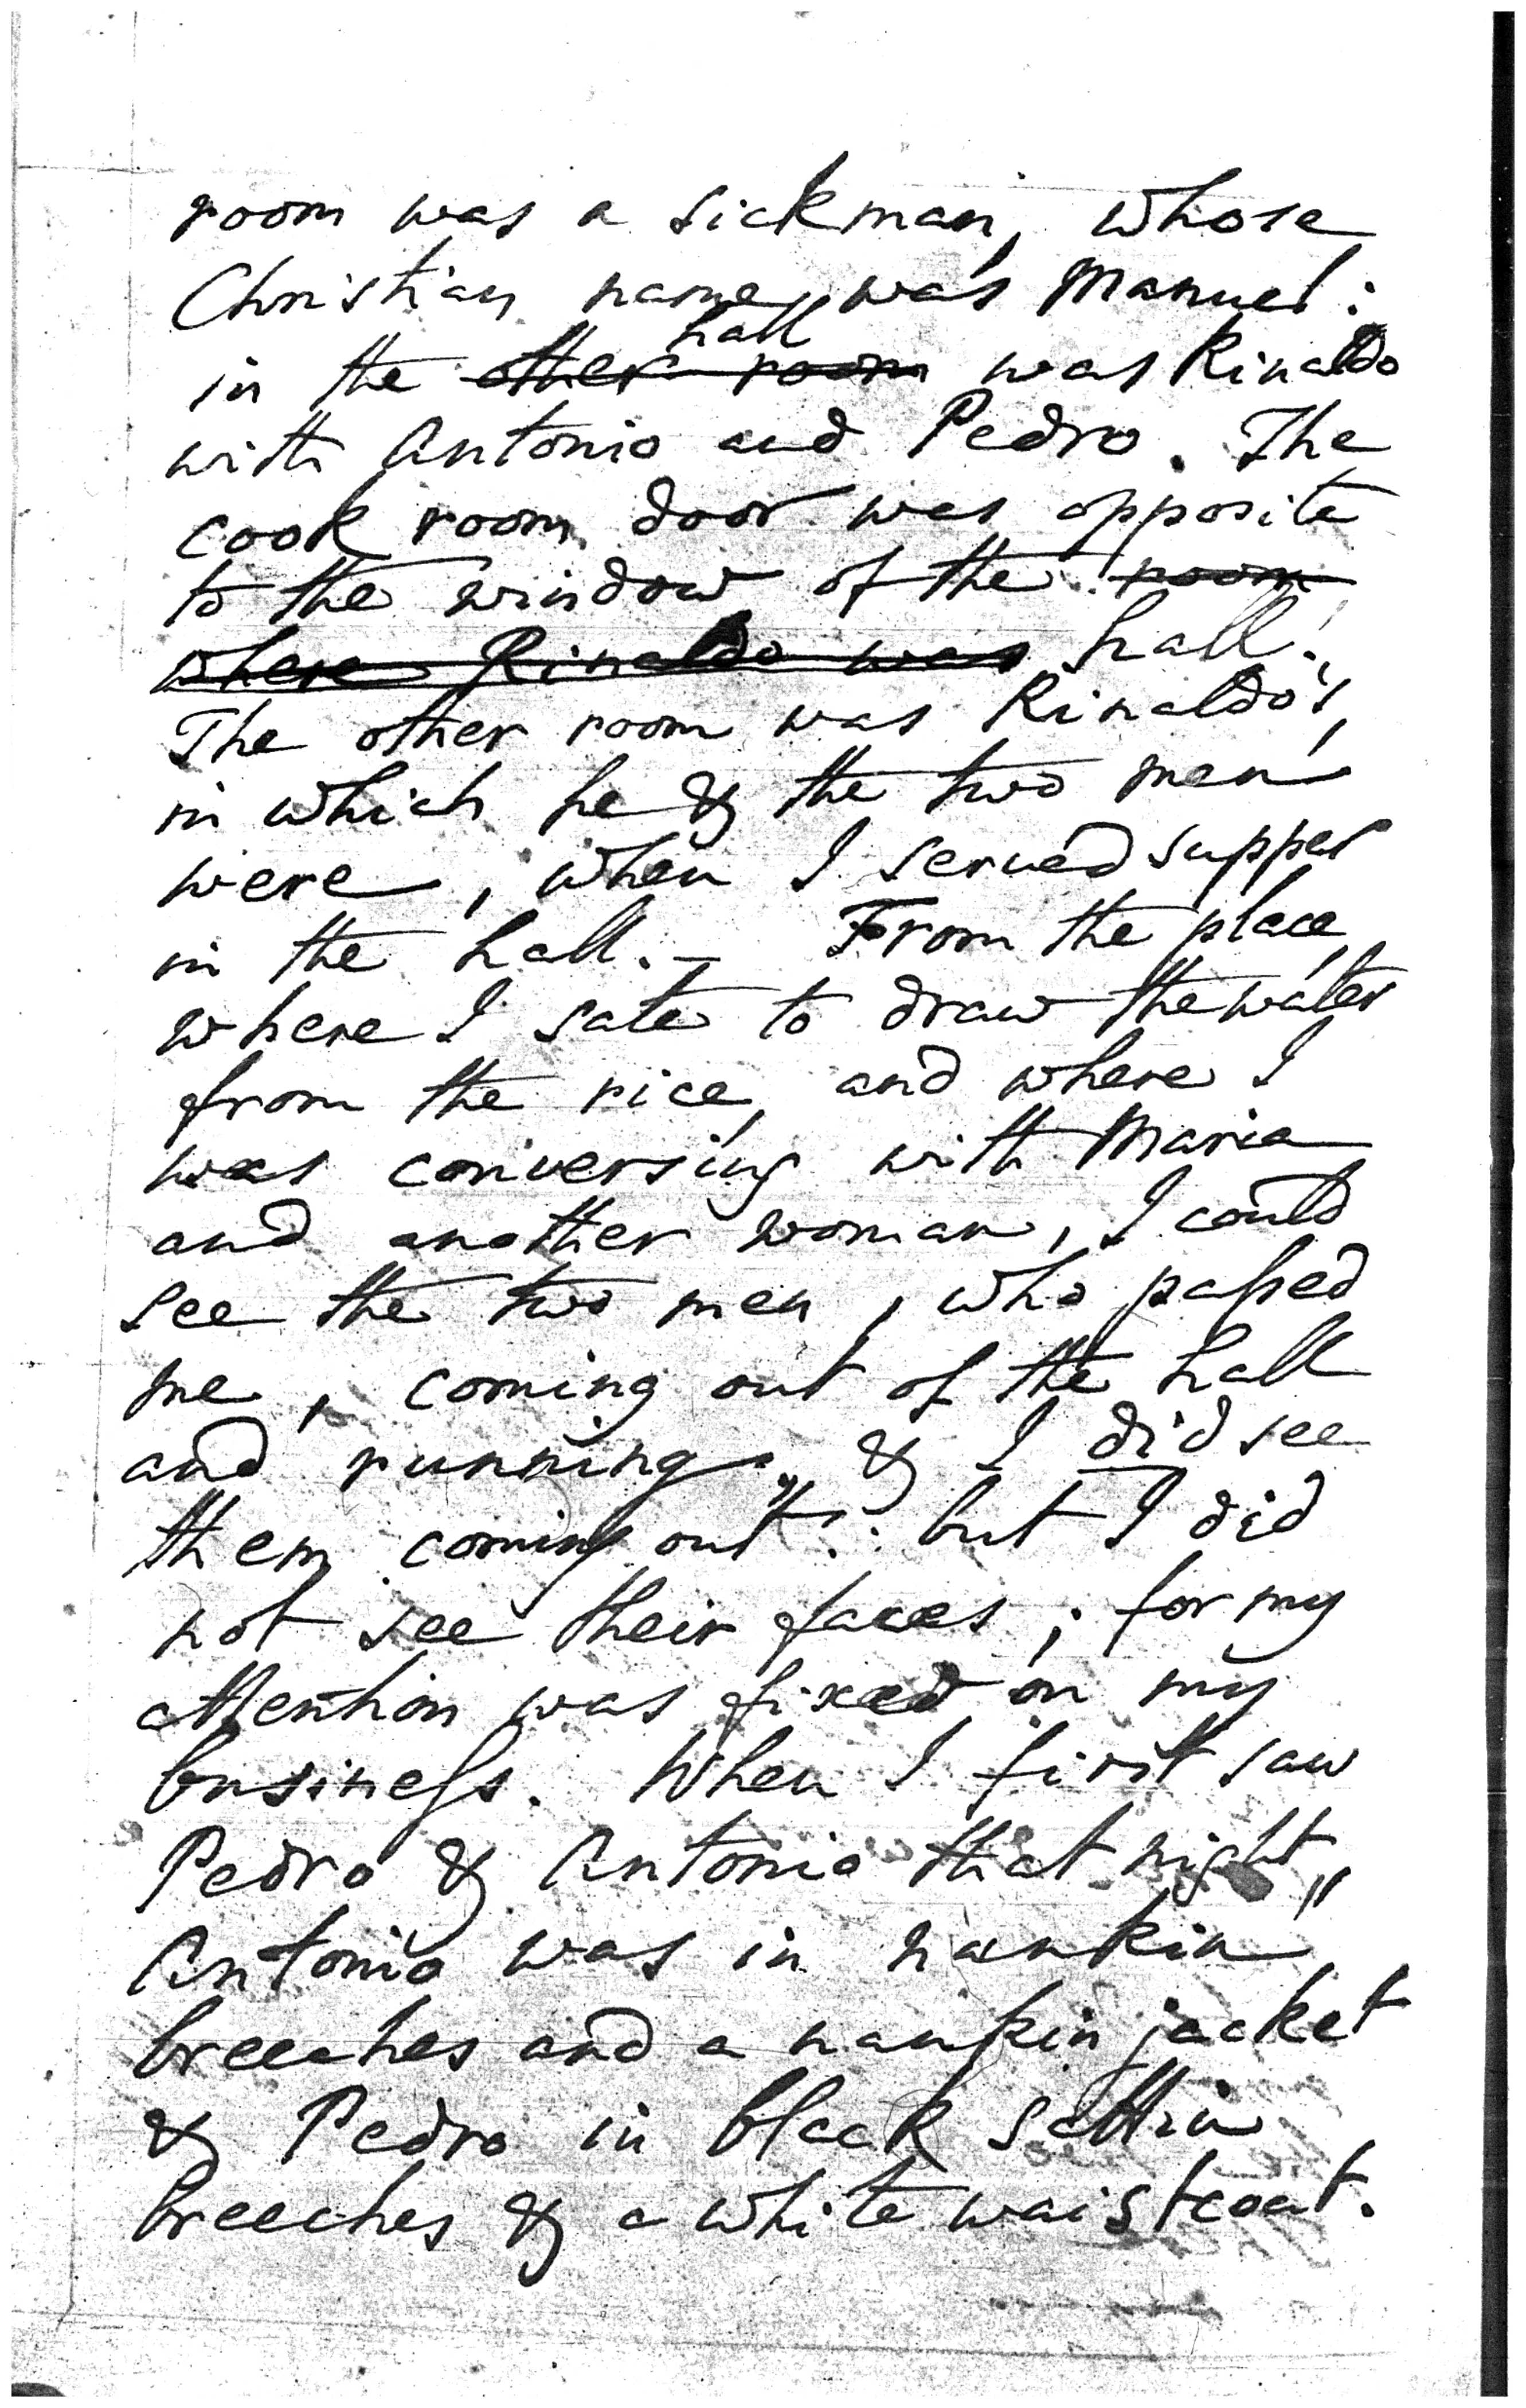 room was a sickman, whose
Christian name was Manuel:
hall
in the other room was Rinaldo
with Antonio and Pedro. The
cook room door was opposite
to the window of the room
where Rinaldo was hall.
The other room was Rinaldo's,
in which he & the two men
were, when I served supper
in the hall. – From the place,
where I sate to draw the water
from the rice, and where I
was conversing with Maria
and another woman, I could
see the two men, who paſsed
me, coming out of the hall
and running, & I did see
them coming out: but I did
not see their faces; for my
attention was fixed on my
busineſs. When I first saw
Pedro & Antonio that night,
Antonio was in nankin
breeches and a nankin jacket
& Pedro in black sattin
breeches & a white waistcoat.